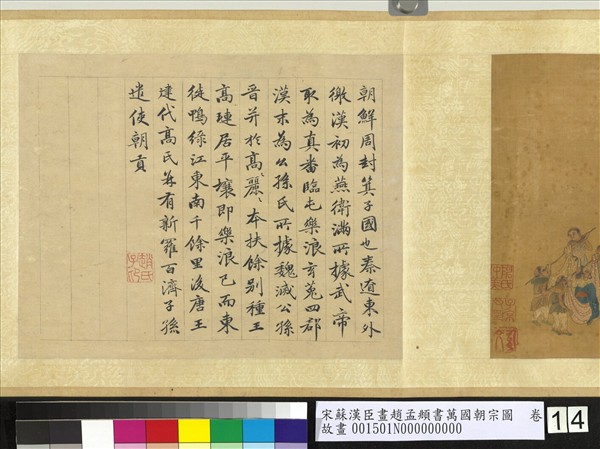 朝鮮周封箕子國也秦遼東外
徼漢初為燕衛滿所據武帝
取為真番臨屯樂浪玄菟四郡
漢末為公孫氏所據魏滅公孫
晉并於高麗、本扶餘别種王
高璉居平壤即樂浪已而東
徙鴨綠江東南千餘里後唐王
建代高氏并有新羅百濟子孫
遣使朝貢
趙氏子昂
宋蘇漢臣畫趙孟頫書萬國朝宗圖 卷
故畫 001501N000000000
14